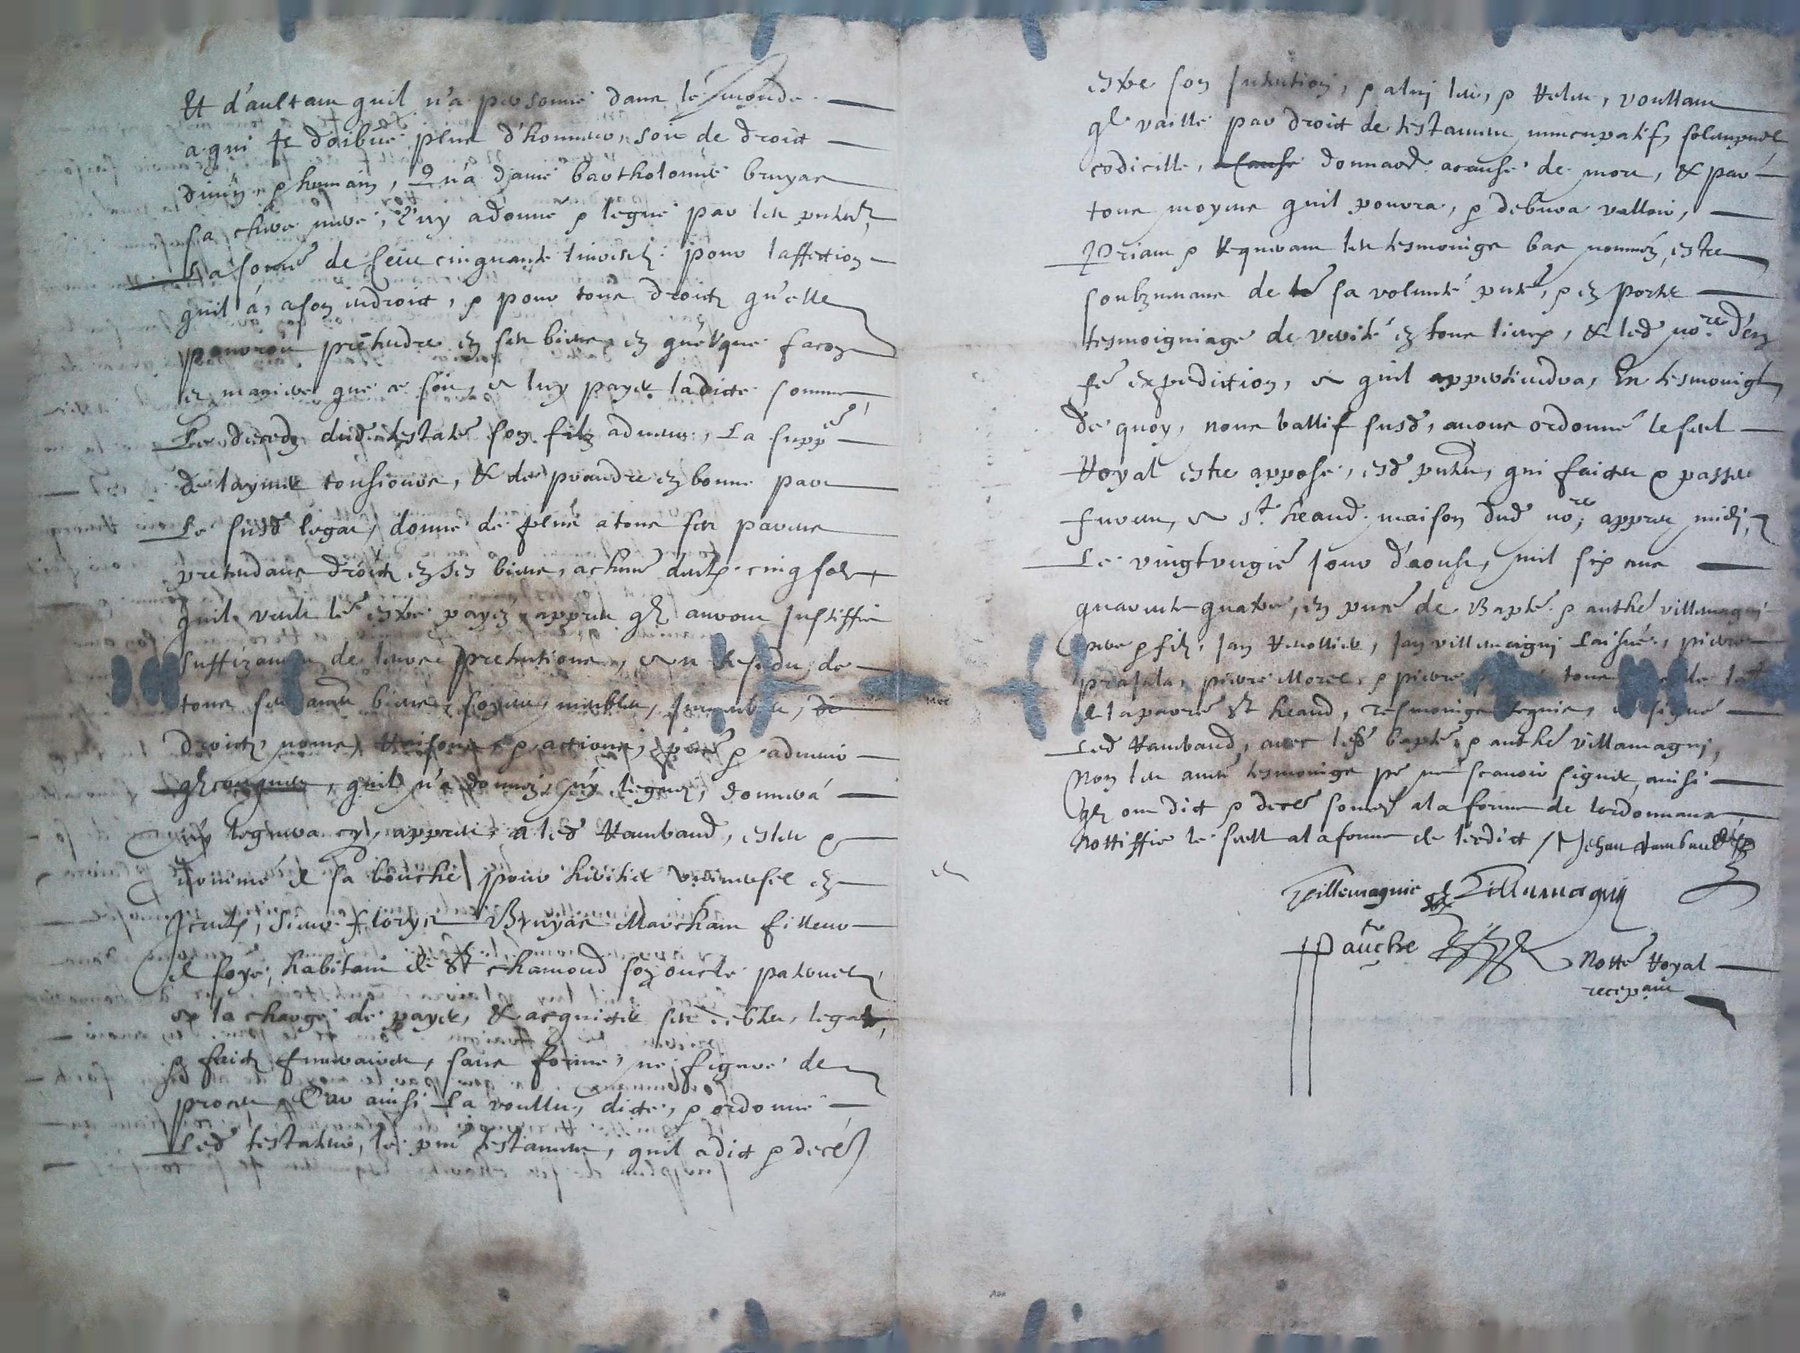 Et d'aultant quil n'a personne dans le monde
a qui Il doibve plus d'honneur soit de droict
divin & humain, qua dame bartholomie bruyas
sa chere mere, luy a donné & legué par les puntes
La some de Cent cinquante livres pour laffection
quil a, a son endroict, & pour tous droictz qu'elle
pourroit pretendre en ses biens, en quelque facon
et maniere que ce soit, et luy payer ladicte somme
Le deceds dud testateur son filz advenu, La supp
de laymer tousiours, & de prandre en bonne part
Le susd legat, donne de plus a tous ses parens
pretendans droictz en ses biens, a chun d'eulx cinq solz
quil veult leur estre payez appres qlz auront Justiffié
suffizament de leurs pretentions, et au residu de
tous ses aultres biens, meubles, Immeubles,
droictz, noms, Raisons, & actions, & advenir
qlconques, quil n'a donnez, ny leguez, donnera
ny leguera cy appres a led Rambaud, esleu &
nommé de sa bouche pour heritier universel en
Iceulx, sieur flory Bruyas Marchant filleur
de soye, habitant de St chamond son oncle paternel
et la charge de payer, & acquiter ses debtes, legatz,
& fraictz funeraires, sans forme, ne figure de
proces, Car ainsi La voullu, dicte, & ordonné
Led testateur, le pnt testament, quil a dict & declé
estre son Intention, & a luy leu, & Releu, voullant
ql vaille par droict de testament nuncupatif, solempnel
codicille, donnaon a cause de mort, & par
tous moyens quil pourra, & debvra valloir,
Priant & Requerant les tesmoings bas nommez, estre
soubzvenans de sa volunté pnte, & en porter
tesmoigniage de verité en tous lieux, & led nore d'en
fe expedition, a quil appertiendra, En tesmoing
de quoy, nous ballif susd, avons ordonné le scel
Royal estre apposé, esd pntes, qui faictes & passees
furent, a St heand maison dud nore, appres midi,
Le vingtungie Jour d'aoust, mil six cens
quarente quatre, en pnce de Bapte & anthe villemagni
pere & filz, Jan Jan villemagni Laisné, pierre
pierre Morel, & pierre tous de la
de la parre St heand, tesmoings signé
Led Rambaud, avec lesd bapte & anthe villamagni,
Non les aultres tesmoings pr ne scavoir signer, ainsi
qlz ont dict & declé a la forme de lordonnance,
nottiffie le scell a la forme de l'edict / Jehan Rambaud
Villemagnie Villemagni
Pauche Notte Royal
recepvant